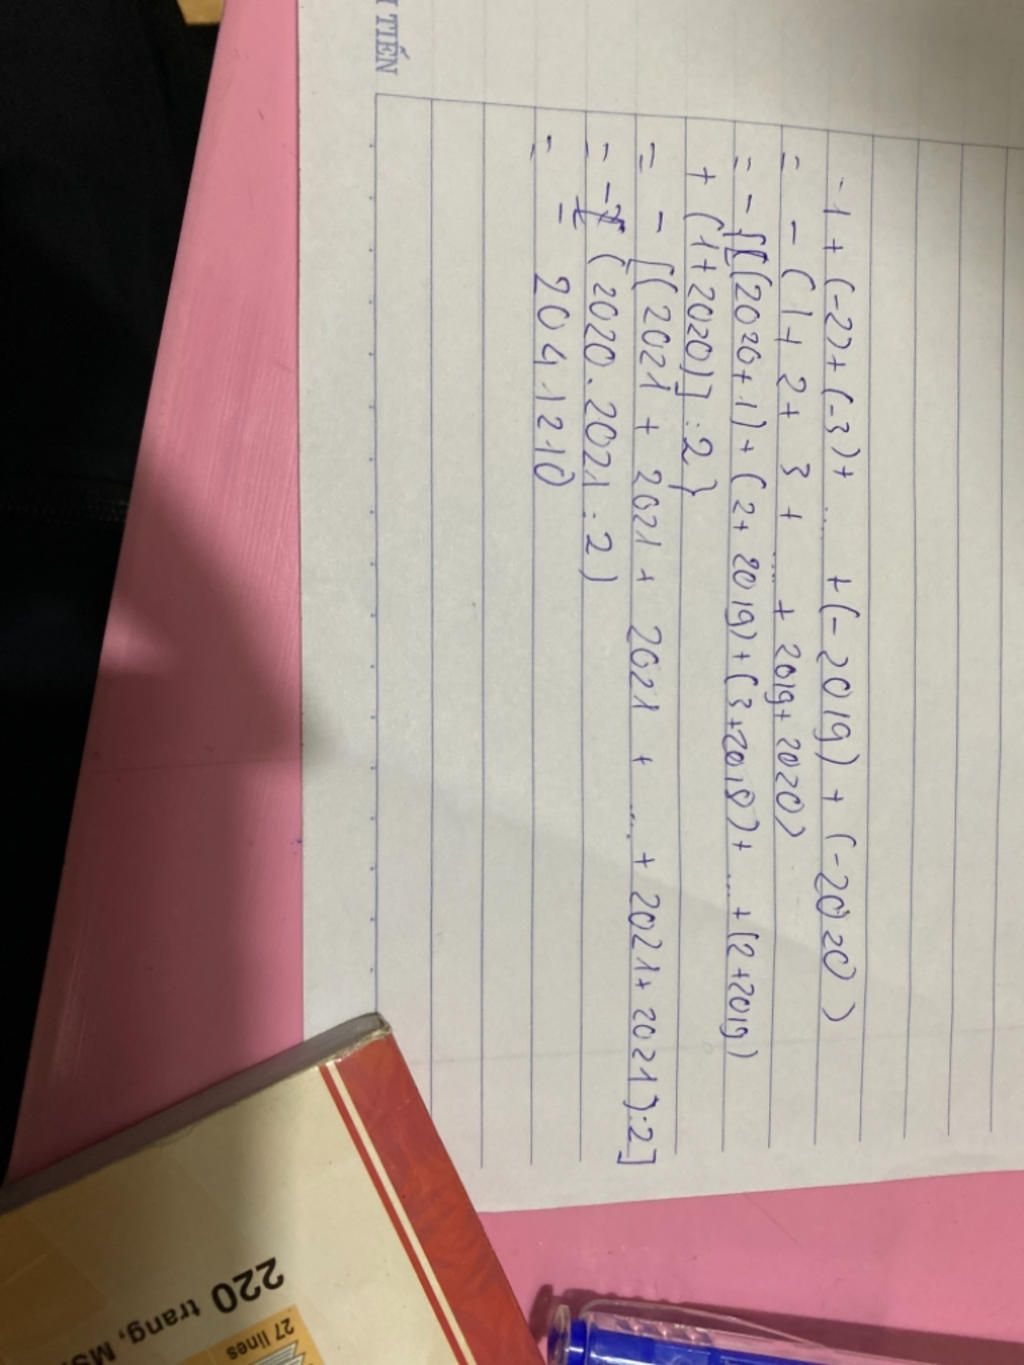 TIẾN
-1+(-2)+(-3)+ .... +(-2019) + (-2020)
= -(1+2+3+ .... + 2019+2020)
= -{[(2020+1)+(2+2019)+(3+2018)+ .... +(2+2019)
+ (1+2020)] : 2}
= - [(2021 + 2021 + 2021 + .... + 2021+2021):2]
= - (2020.2021:2)
= - 2041210
220 trang, MS
27 lines